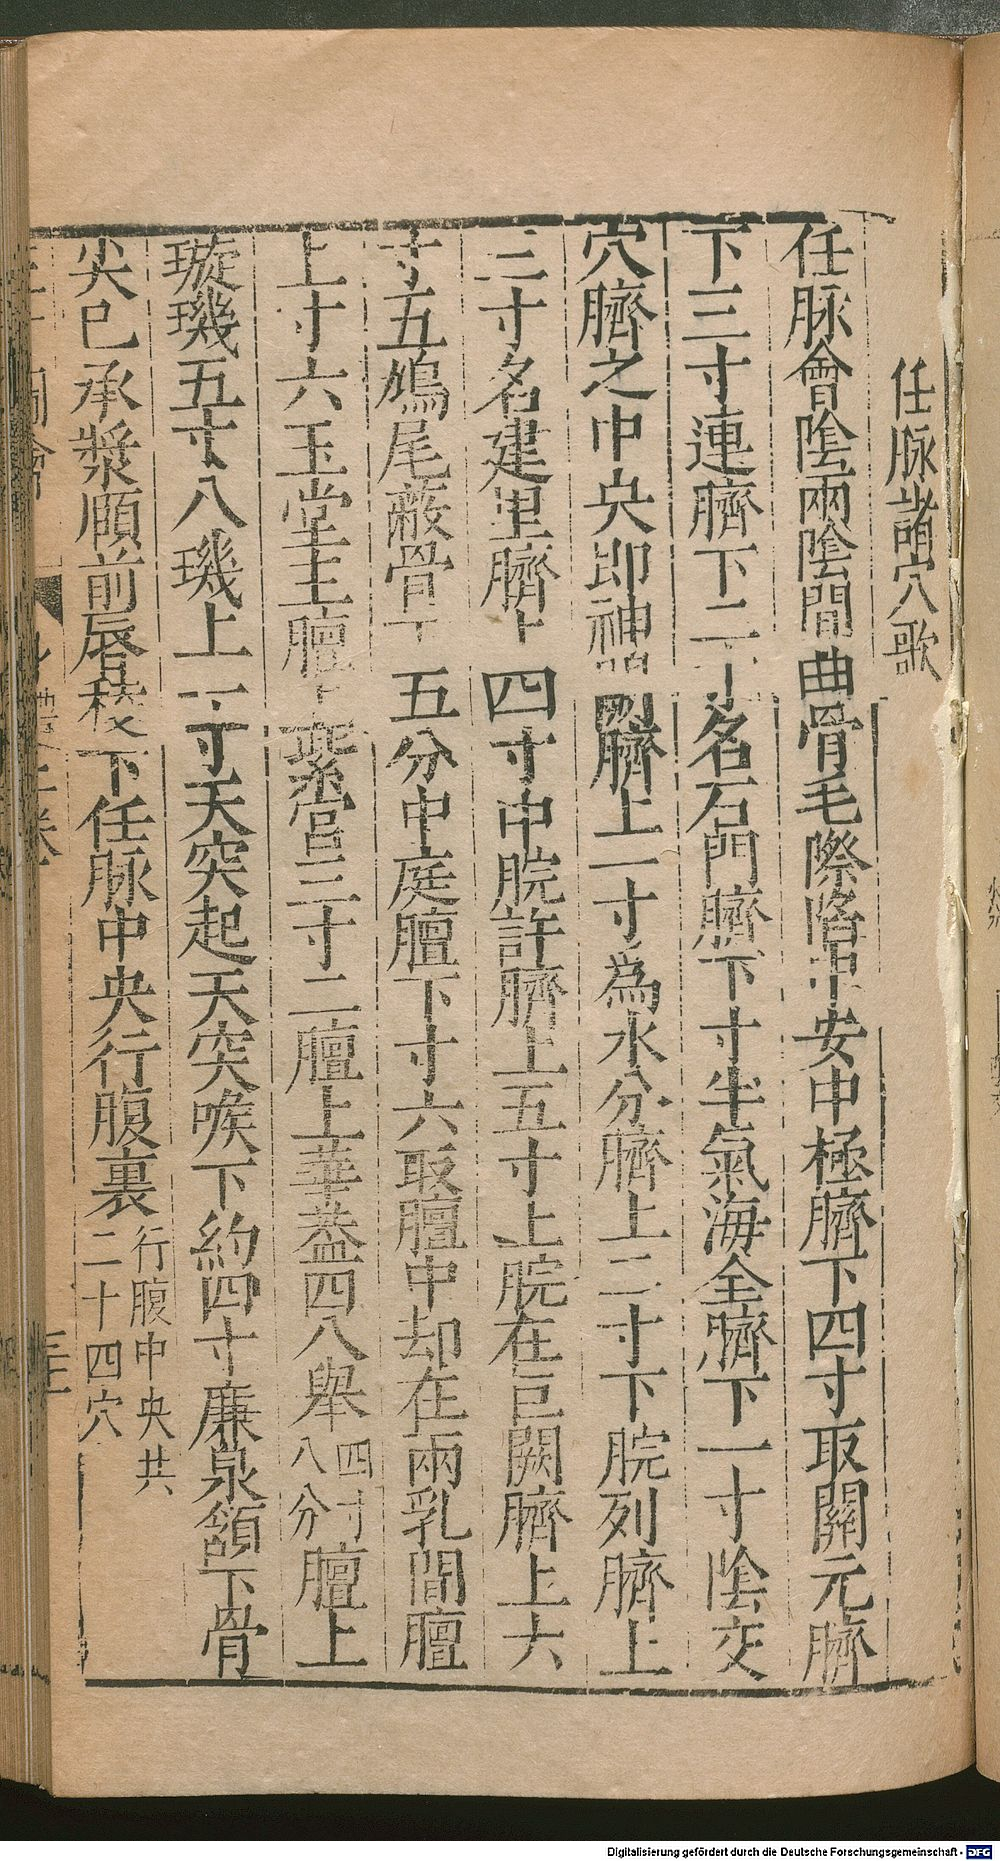 任脉諸穴歌
任脉會陰兩陰間曲骨毛際陷中安中極臍下四寸取關元臍
下三寸連臍下二寸名石門臍下寸半氣海全臍下一寸陰交
穴臍之中央即神闕臍上一寸爲水分臍上二寸下脘列臍上
三寸名建里臍上四寸中脘許臍上五寸上脘在巨闕臍上六
寸五鳩尾蔽骨下五分中庭膻下寸六取膻中却在兩乳間膻
上寸六玉堂主膻上紫宮三寸二膻上華蓋四八舉四寸八分膻上
璇璣五寸八璣上一寸天突起天突喉下約四寸廉泉頷下骨
尖已承漿頤前唇稜下任脉中央行腹裏行腹中央共二十四穴
Digitalisierung gefördert durch die Deutsche Forschungsgemeinschaft - DFG